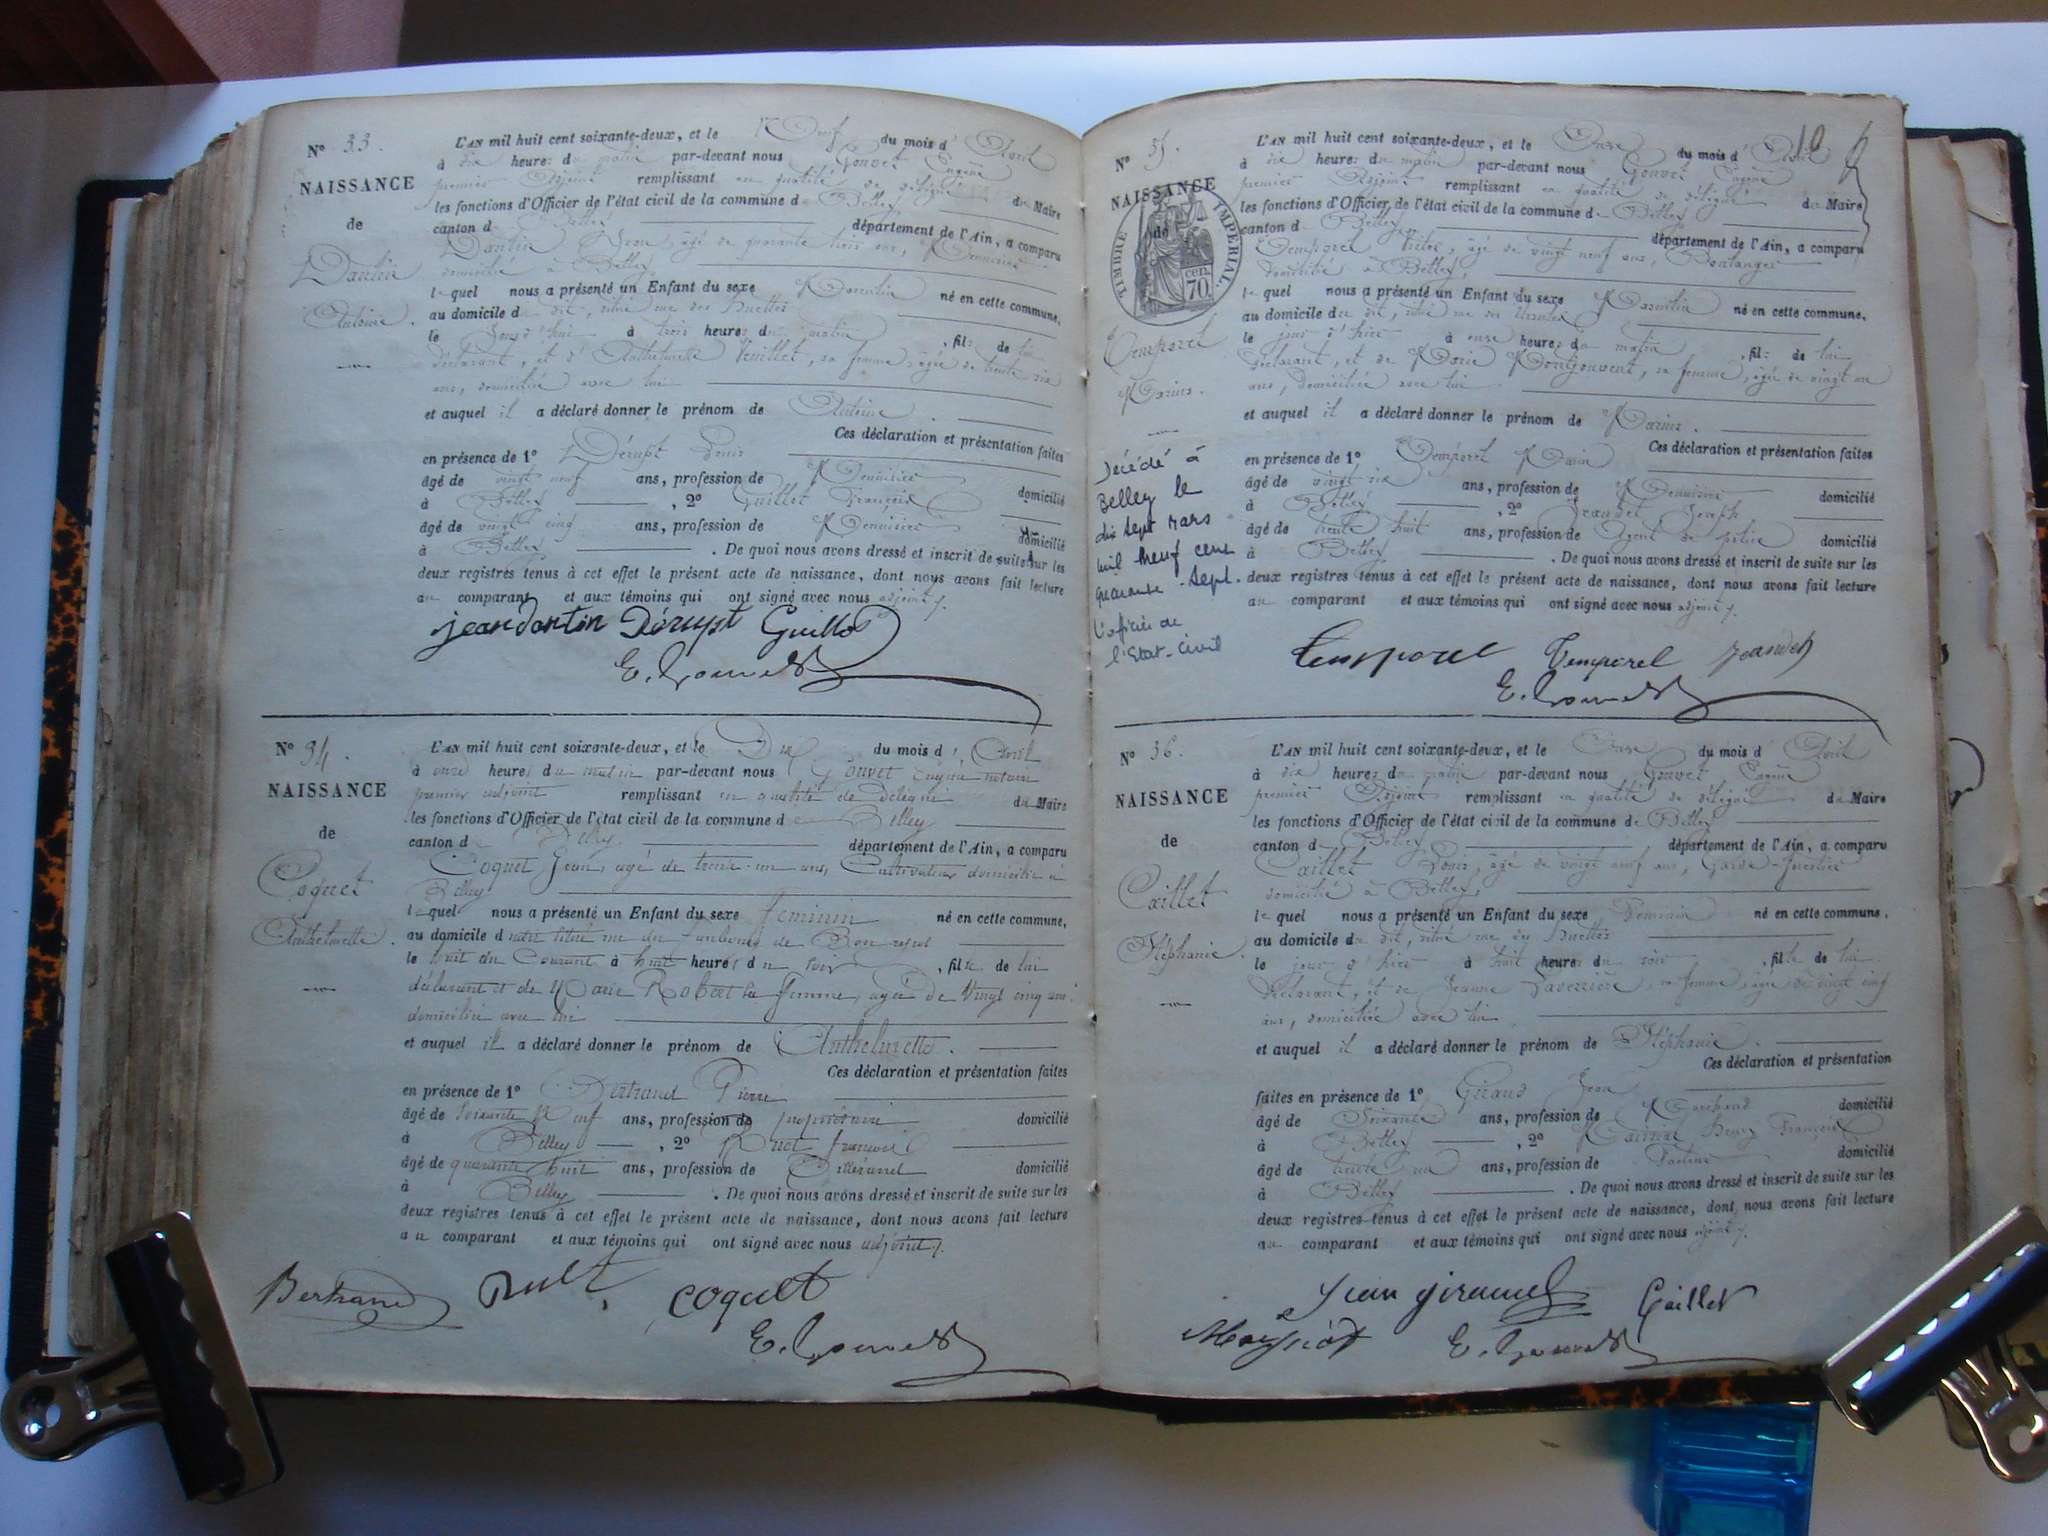 N° 33.
NAISSANCE
de
Dantin
Antoine.
L'AN mil huit cent soixante-deux, et le Neuf du mois d'Avril
à dix heures du matin par-devant nous Gouvet Eugène
premier Adjoint remplissant en qualité de délégué
les fonctions d'Officier de l'état civil de la commune de Belley du Maire
canton de Belley département de l'Ain, a comparu
Dantin Jean, âgé de quarante trois ans, Menuisier
domicilié à Belley
lequel nous a présenté un Enfant du sexe Masculin né en cette commune,
au domicile du dit, situé rue des
le Jour d'hui à trois heures du matin, fils de lui
déclarant, et d'Anthelmette Vuillet, sa femme, âgée de trente six
ans, domiciliée avec lui
et auquel il a déclaré donner le prénom de Antoine.
Ces déclaration et présentation faites
en présence de 1° Dérupt Louis
âgé de vingt neuf ans, profession de Menuisier domicilié
à Belley, 2° Guillot François
âgé de vingt cinq ans, profession de Menuisier domicilié
à Belley. De quoi nous avons dressé et inscrit de suite sur les
deux registres tenus à cet effet le présent acte de naissance, dont nous avons fait lecture
au comparant et aux témoins qui ont signé avec nous adjoint
jean dantin Dérupt Guillot
E. Gouvet
N° 34.
NAISSANCE
de
Coquet
Anthelmette.
L'AN mil huit cent soixante-deux, et le Dix du mois d'Avril
à onze heures du matin par-devant nous Gouvet Eugène notaire
premier adjoint remplissant en qualité de délégué du Maire
les fonctions d'Officier de l'état civil de la commune de Belley
canton de Belley département de l'Ain, a comparu
Coquet Jean, agé de trente-un ans, Cultivateur domicilié à
Belley
lequel nous a présenté un Enfant du sexe feminin né en cette commune,
au domicile situé rue du faubourg de
le huit du Courant à huit heures du soir, fille de lui
déclarant et de Marie Robert sa femme, agée de Vingt cinq ans
domiciliée avec lui
et auquel il a déclaré donner le prénom de Anthelmette.
Ces déclaration et présentation faites
en présence de 1° Bertrand Pierre
âgé de Soixante Neuf ans, profession de propriétaire domicilié
à Belley, 2° Ruet françois
âgé de quarante huit ans, profession de domicilié
à Belley. De quoi nous avons dressé et inscrit de suite sur les
deux registres tenus à cet effet le présent acte de naissance, dont nous avons fait lecture
au comparant et aux témoins qui ont signé avec nous adjoint
Bertrand Ruet coquet
E. Gouvet
10
N° 35.
NAISSANCE
de
TIMBRE IMPERIAL
70 cen.
Temporel
Marius.
Décédé à
Belley le
dix sept Mars
mil neuf cent
quarante-sept.
L'officier de
l'Etat-Civil
L'AN mil huit cent soixante-deux, et le Onze du mois d'Avril
à dix heures du matin par-devant nous Gouvet Eugène
premier Adjoint remplissant en qualité de délégué
les fonctions d'Officier de l'état civil de la commune de Belley du Maire
canton de Belley département de l'Ain, a comparu
Temporel Victor, âgé de vingt neuf ans, Boulanger
domicilié à Belley,
lequel nous a présenté un Enfant du sexe Masculin né en cette commune,
au domicile du dit, situé rue des
le jour d'hier à onze heures du matin, fils de lui
déclarant, et de Marie Montjouvent, sa femme, âgée de vingt un
ans, domiciliée avec lui
et auquel il a déclaré donner le prénom de Marius.
Ces déclaration et présentation faites
en présence de 1° Temporel Marin
âgé de vingt six ans, profession de Menuisier domicilié
à Belley, 2° Jeandet Joseph
âgé de trente huit ans, profession de Agent de police domicilié
à Belley. De quoi nous avons dressé et inscrit de suite sur les
deux registres tenus à cet effet le présent acte de naissance, dont nous avons fait lecture
au comparant et aux témoins qui ont signé avec nous adjoint
temporel Temporel Jeandet
E. Gouvet
N° 36.
NAISSANCE
de
Caillet
Stéphanie.
L'AN mil huit cent soixante-deux, et le Onze du mois d'Avril
à dix heures du matin par-devant nous Gouvet Eugène
premier Adjoint remplissant en qualité de délégué du Maire
les fonctions d'Officier de l'état civil de la commune de Belley
canton de Belley département de l'Ain, a comparu
Caillet Louis, âgé de vingt neuf ans, Garde-forestier
domicilié à Belley,
lequel nous a présenté un Enfant du sexe Féminin né en cette commune,
au domicile du dit, situé rue des
le jour d'hier à huit heures du soir, fille de lui
déclarant, et de Jeanne Laverrière, sa femme, âgée de vingt cinq
ans, domiciliée avec lui
et auquel il a déclaré donner le prénom de Stéphanie.
Ces déclaration et présentation
faites en présence de 1° Giraud Jean
âgé de Soixante ans, profession de domicilié
à Belley, 2° Henry François
âgé de trente un ans, profession de Facteur domicilié
à Belley. De quoi nous avons dressé et inscrit de suite sur les
deux registres tenus à cet effet le présent acte de naissance, dont nous avons fait lecture
au comparant et aux témoins qui ont signé avec nous adjoint
Jean giraud Caillet
E. Gouvet